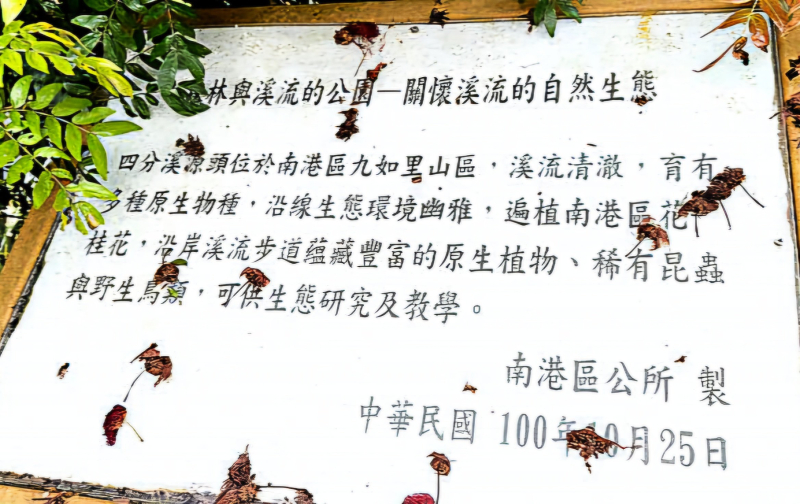 林與溪流的公園—關懷溪流的自然生態
四分溪源頭位於南港區九如里山區，溪流清澈，育有
多種原生物種，沿線生態環境幽雅，遍植南港區花
桂花，沿岸溪流步道蘊藏豐富的原生植物、稀有昆蟲
與野生鳥類，可供生態研究及教學。
南港區公所 製
中華民國 100年10月25日